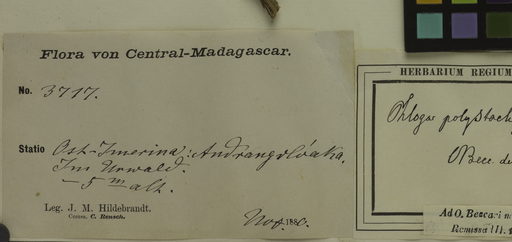 Flora von Central-Madagascar.
No. 3717.
Statio Ost-Imerina: Andrangolóaka,
Im Urwald.
—5 m alt.
Leg. J. M. Hildebrandt.
Comm. C. Rensch.
Nov. 1880.
HERBARIUM REGIUM
Phloga polystach
Becc. de
Ad O. Beccari m
Remissa